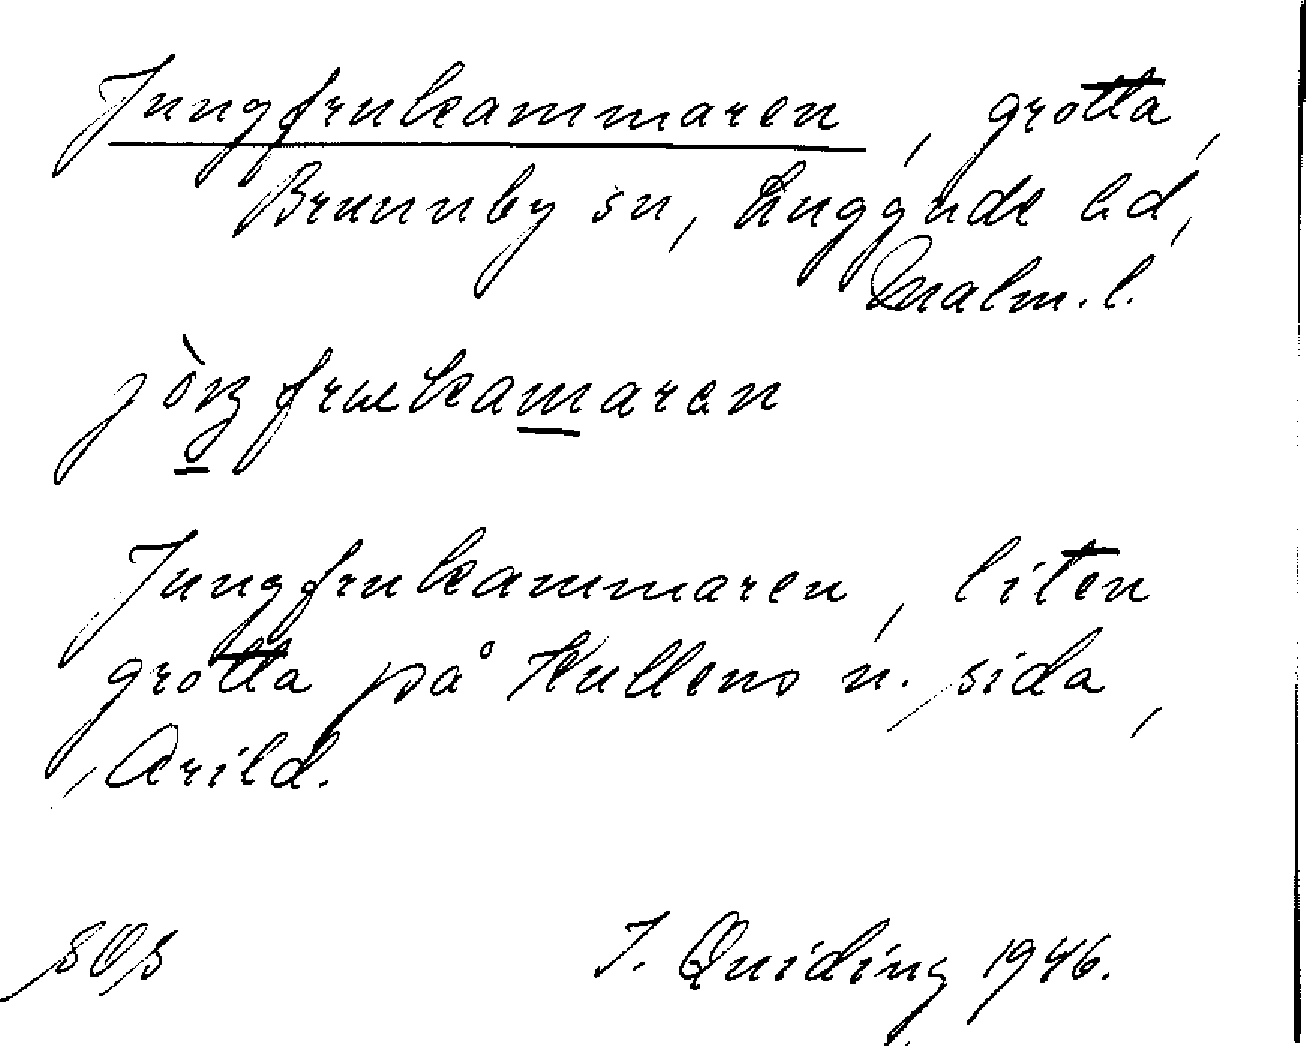 Jungfrukammaren, grotta,
Brunnby sn, Luggude hd,
Malm. l.
Jungfrukammaren, liten
grotta på Kullens n. sida,
Arild.
I. Quiding 1946.